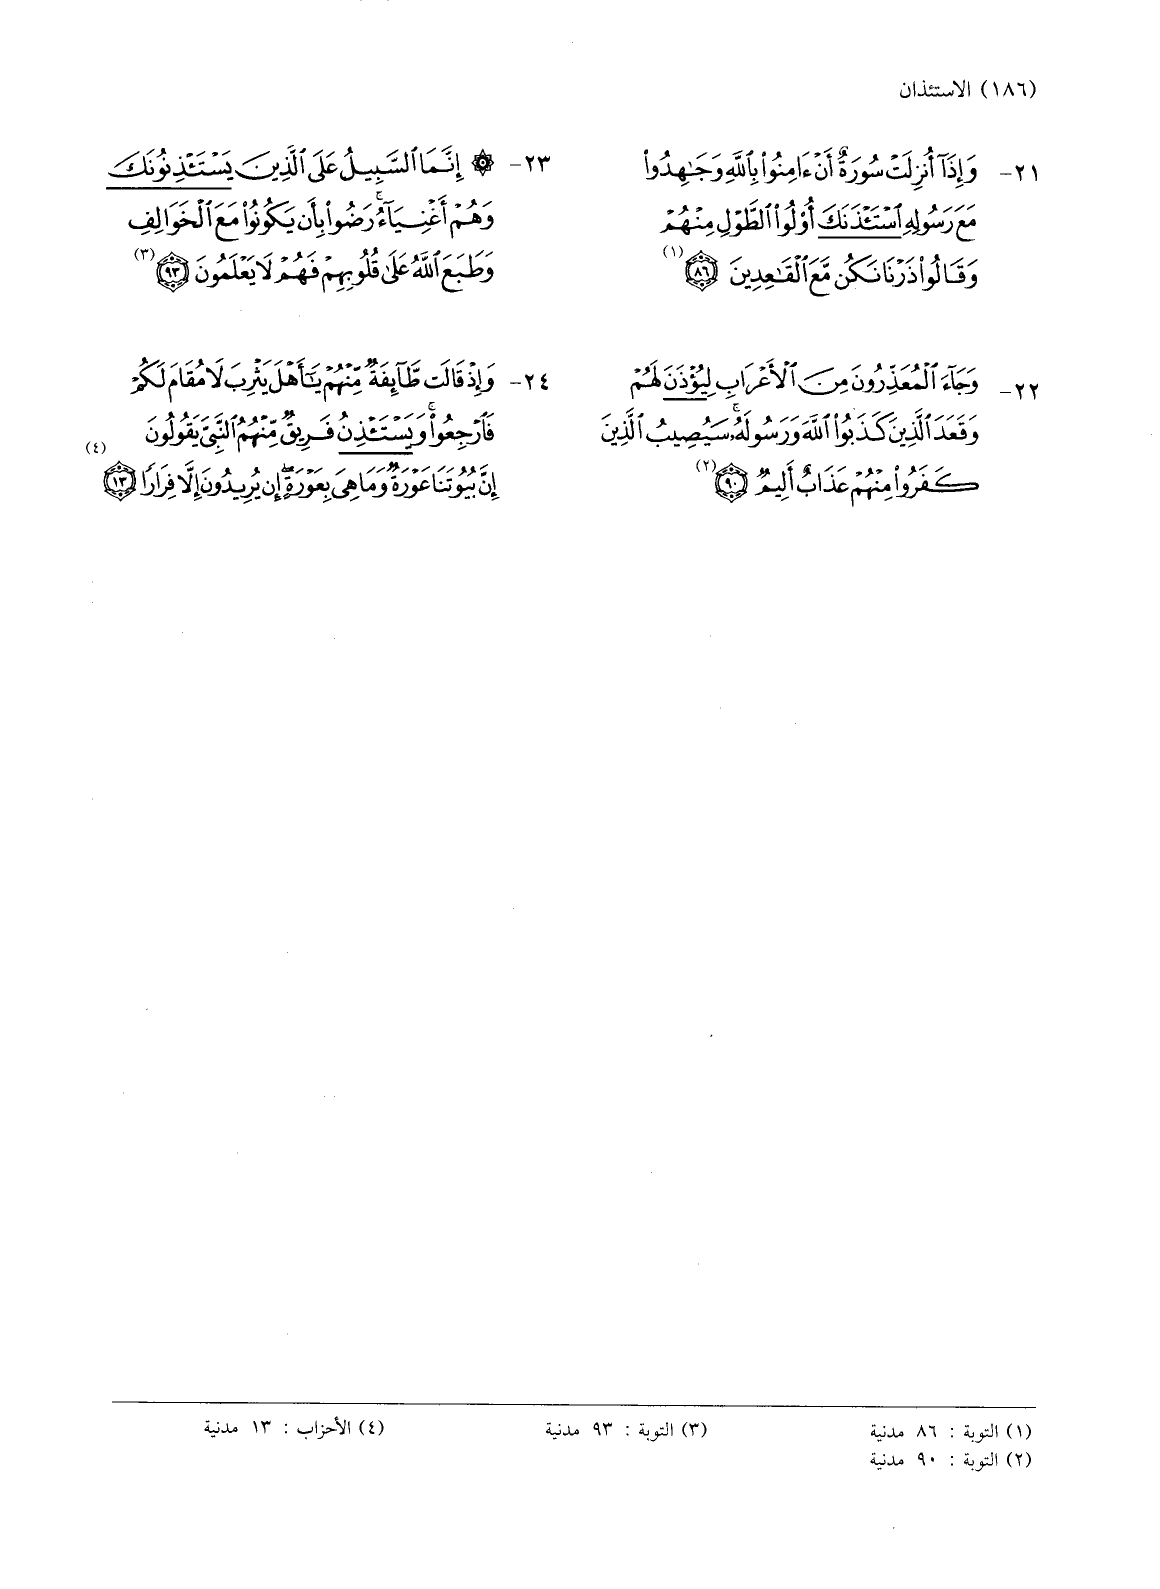 (١٨٦) الاستئذان
٢١- وَإِذَآ أُنزِلَتْ سُورَةٌ أَنْ ءَامِنُوا۟ بِٱللَّهِ وَجَـٰهِدُوا۟
مَعَ رَسُولِهِ ٱسْتَـْٔذَنَكَ أُو۟لُوا۟ ٱلطَّوْلِ مِنْهُمْ
وَقَالُوا۟ ذَرْنَا نَكُن مَّعَ ٱلْقَـٰعِدِينَ ٨٦ (١)
٢٢- وَجَآءَ ٱلْمُعَذِّرُونَ مِنَ ٱلْأَعْرَابِ لِيُؤْذَنَ لَهُمْ
وَقَعَدَ ٱلَّذِينَ كَذَبُوا۟ ٱللَّهَ وَرَسُولَهُۥ ۚ سَيُصِيبُ ٱلَّذِينَ
كَفَرُوا۟ مِنْهُمْ عَذَابٌ أَلِيمٌ ٩٠ (٢)
٢٣- ۞ إِنَّمَا ٱلسَّبِيلُ عَلَى ٱلَّذِينَ يَسْتَـْٔذِنُونَكَ
وَهُمْ أَغْنِيَآءُ ۚ رَضُوا۟ بِأَن يَكُونُوا۟ مَعَ ٱلْخَوَالِفِ
وَطَبَعَ ٱللَّهُ عَلَىٰ قُلُوبِهِمْ فَهُمْ لَا يَعْلَمُونَ ٩٣ (٣)
٢٤- وَإِذْ قَالَت طَّآئِفَةٌ مِّنْهُمْ يَـٰٓأَهْلَ يَثْرِبَ لَا مُقَامَ لَكُمْ
فَٱرْجِعُوا۟ ۚ وَيَسْتَـْٔذِنُ فَرِيقٌ مِّنْهُمُ ٱلنَّبِىَّ يَقُولُونَ
إِنَّ بُيُوتَنَا عَوْرَةٌ وَمَا هِىَ بِعَوْرَةٍ ۖ إِن يُرِيدُونَ إِلَّا فِرَارًا ١٣ (٤)
(١) التوبة : ٨٦ مدنية
(٢) التوبة : ٩٠ مدنية
(٣) التوبة : ٩٣ مدنية
(٤) الأحزاب : ١٣ مدنية